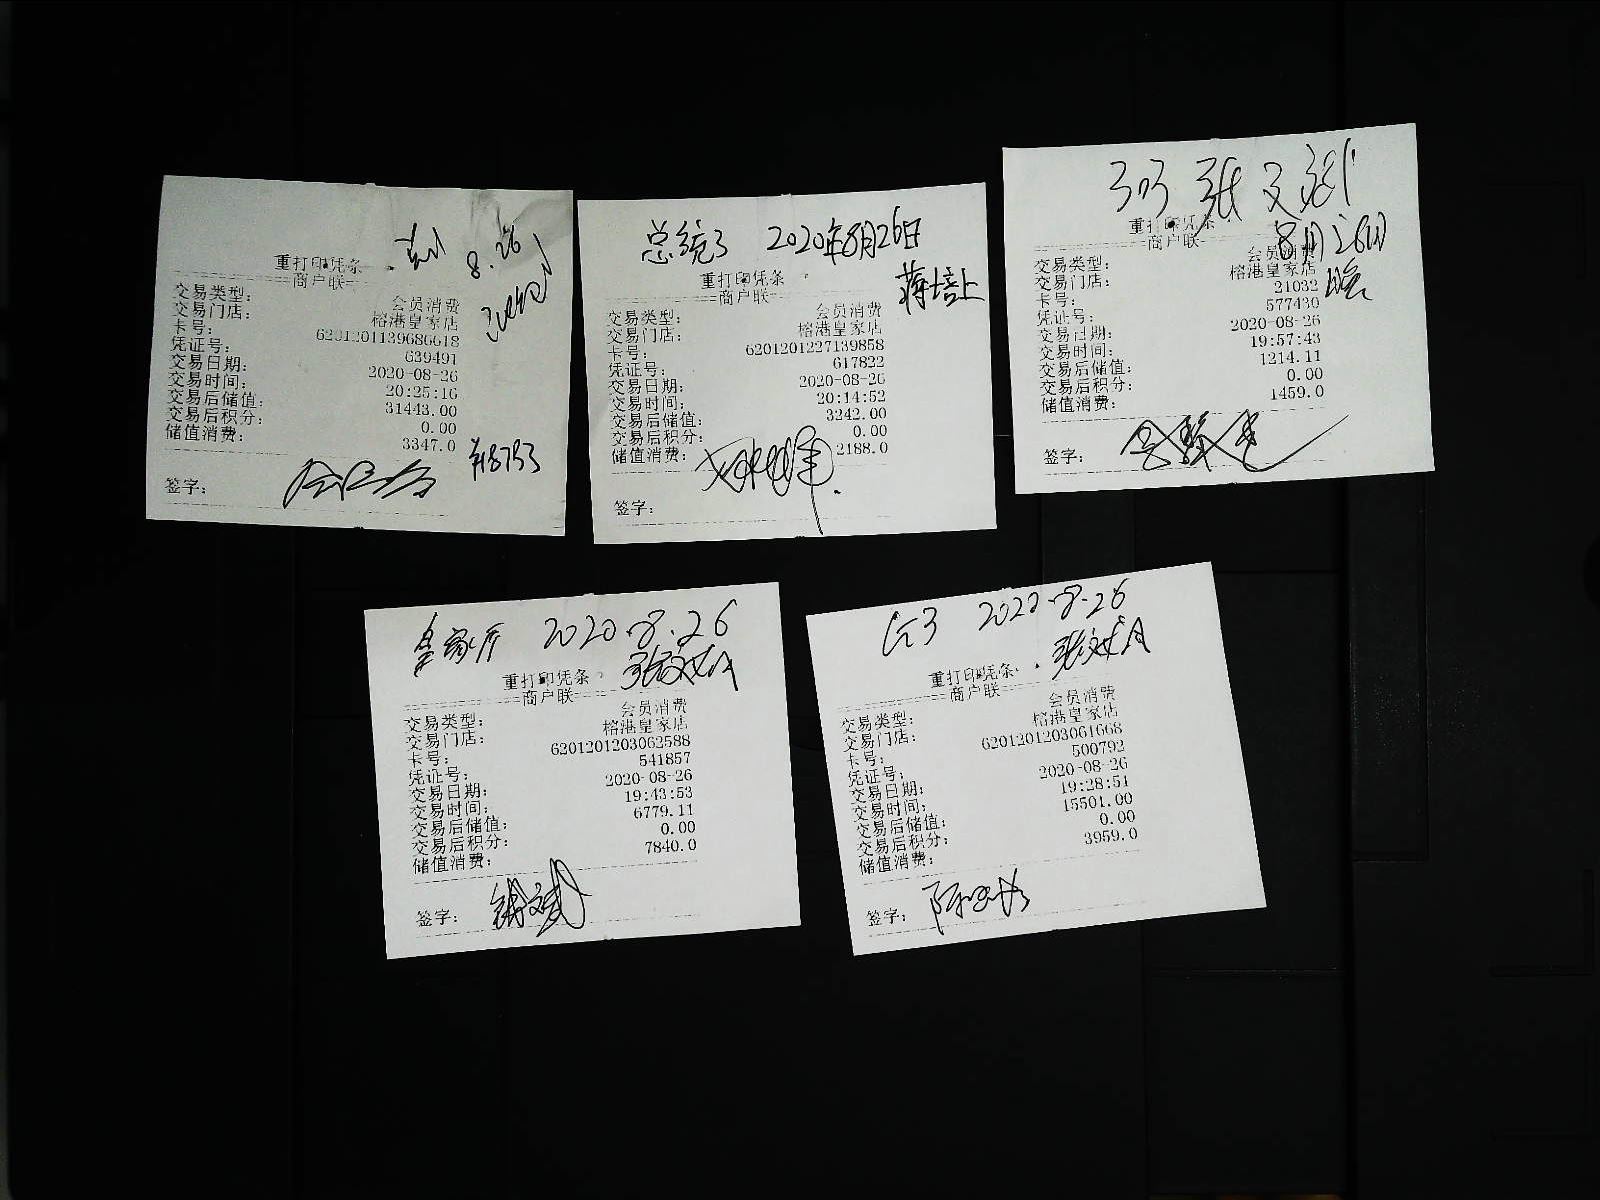 8.26
重打印凭条
==商户联==
交易类型: 会员消费
交易门店: 榕港皇家店
卡号: 6201201139686618
凭证号: 639491
交易日期: 2020-08-26
交易时间: 20:25:16
交易后储值: 31443.00
交易后积分: 0.00
储值消费: 3347.0
签字:
总统3 2020年8月26日
蒋培上
重打印凭条
==商户联==
交易类型: 会员消费
交易门店: 榕港皇家店
卡号: 6201201227139858
凭证号: 617822
交易日期: 2020-08-26
交易时间: 20:14:52
交易后储值: 3242.00
交易后积分: 0.00
储值消费: 2188.0
签字:
张文彬
8月26日
晚
重打印凭条
商户联
交易类型: 会员消费
交易门店: 榕港皇家店
卡号: 21032
凭证号: 577430
交易日期: 2020-08-26
交易时间: 19:57:43
交易后储值: 1214.11
交易后积分: 0.00
储值消费: 1459.0
签字:
皇家厅 2020.8.26
重打印凭条
==商户联==
交易类型: 会员消费
交易门店: 榕港皇家店
卡号: 6201201203062588
凭证号: 541857
交易日期: 2020-08-26
交易时间: 19:43:53
交易后储值: 6779.11
交易后积分: 0.00
储值消费: 7840.0
签字:
2020.8.26
重打印凭条
==商户联==
交易类型: 会员消费
交易门店: 榕港皇家店
卡号: 6201201203061668
凭证号: 500792
交易日期: 2020-08-26
交易时间: 19:28:51
交易后储值: 15501.00
交易后积分: 0.00
储值消费: 3959.0
签字: